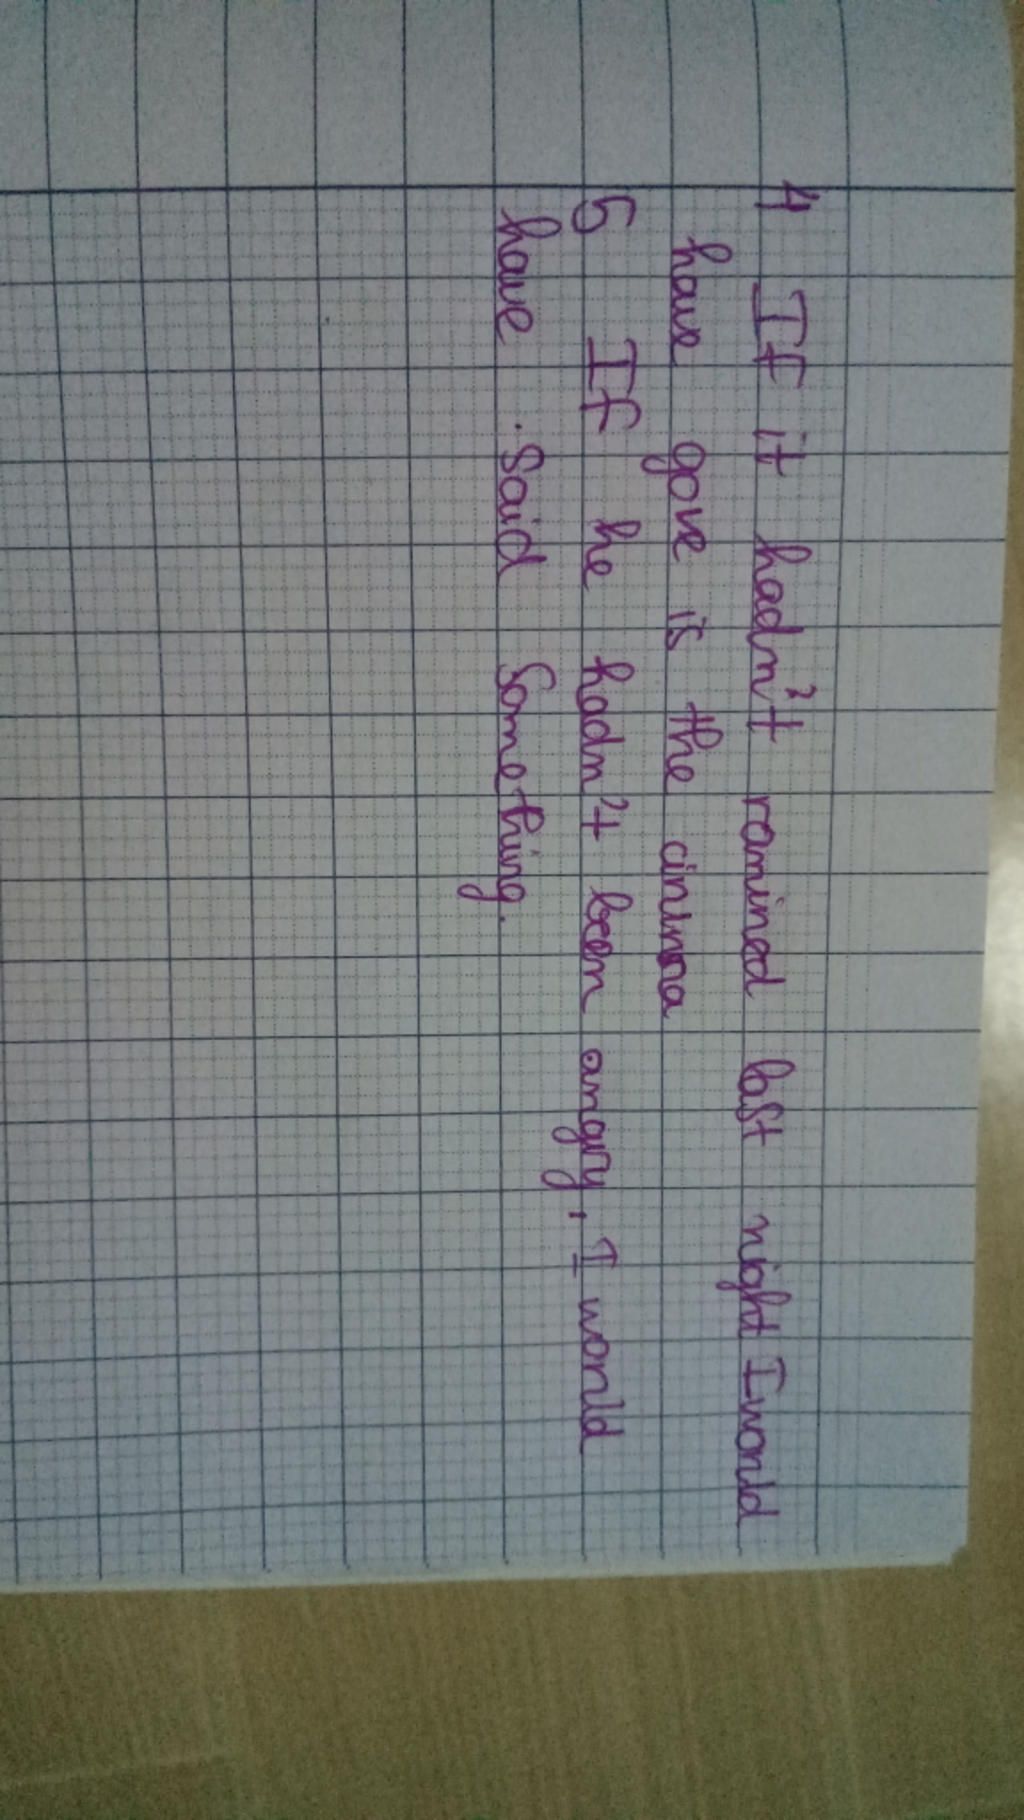 4 If it hadn't ramined last night I would
have gove is the cinima
5 If he hadn't been angry, I would
have said something.